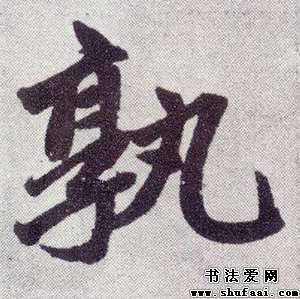 孰
书法爱网
www.shufaai.com